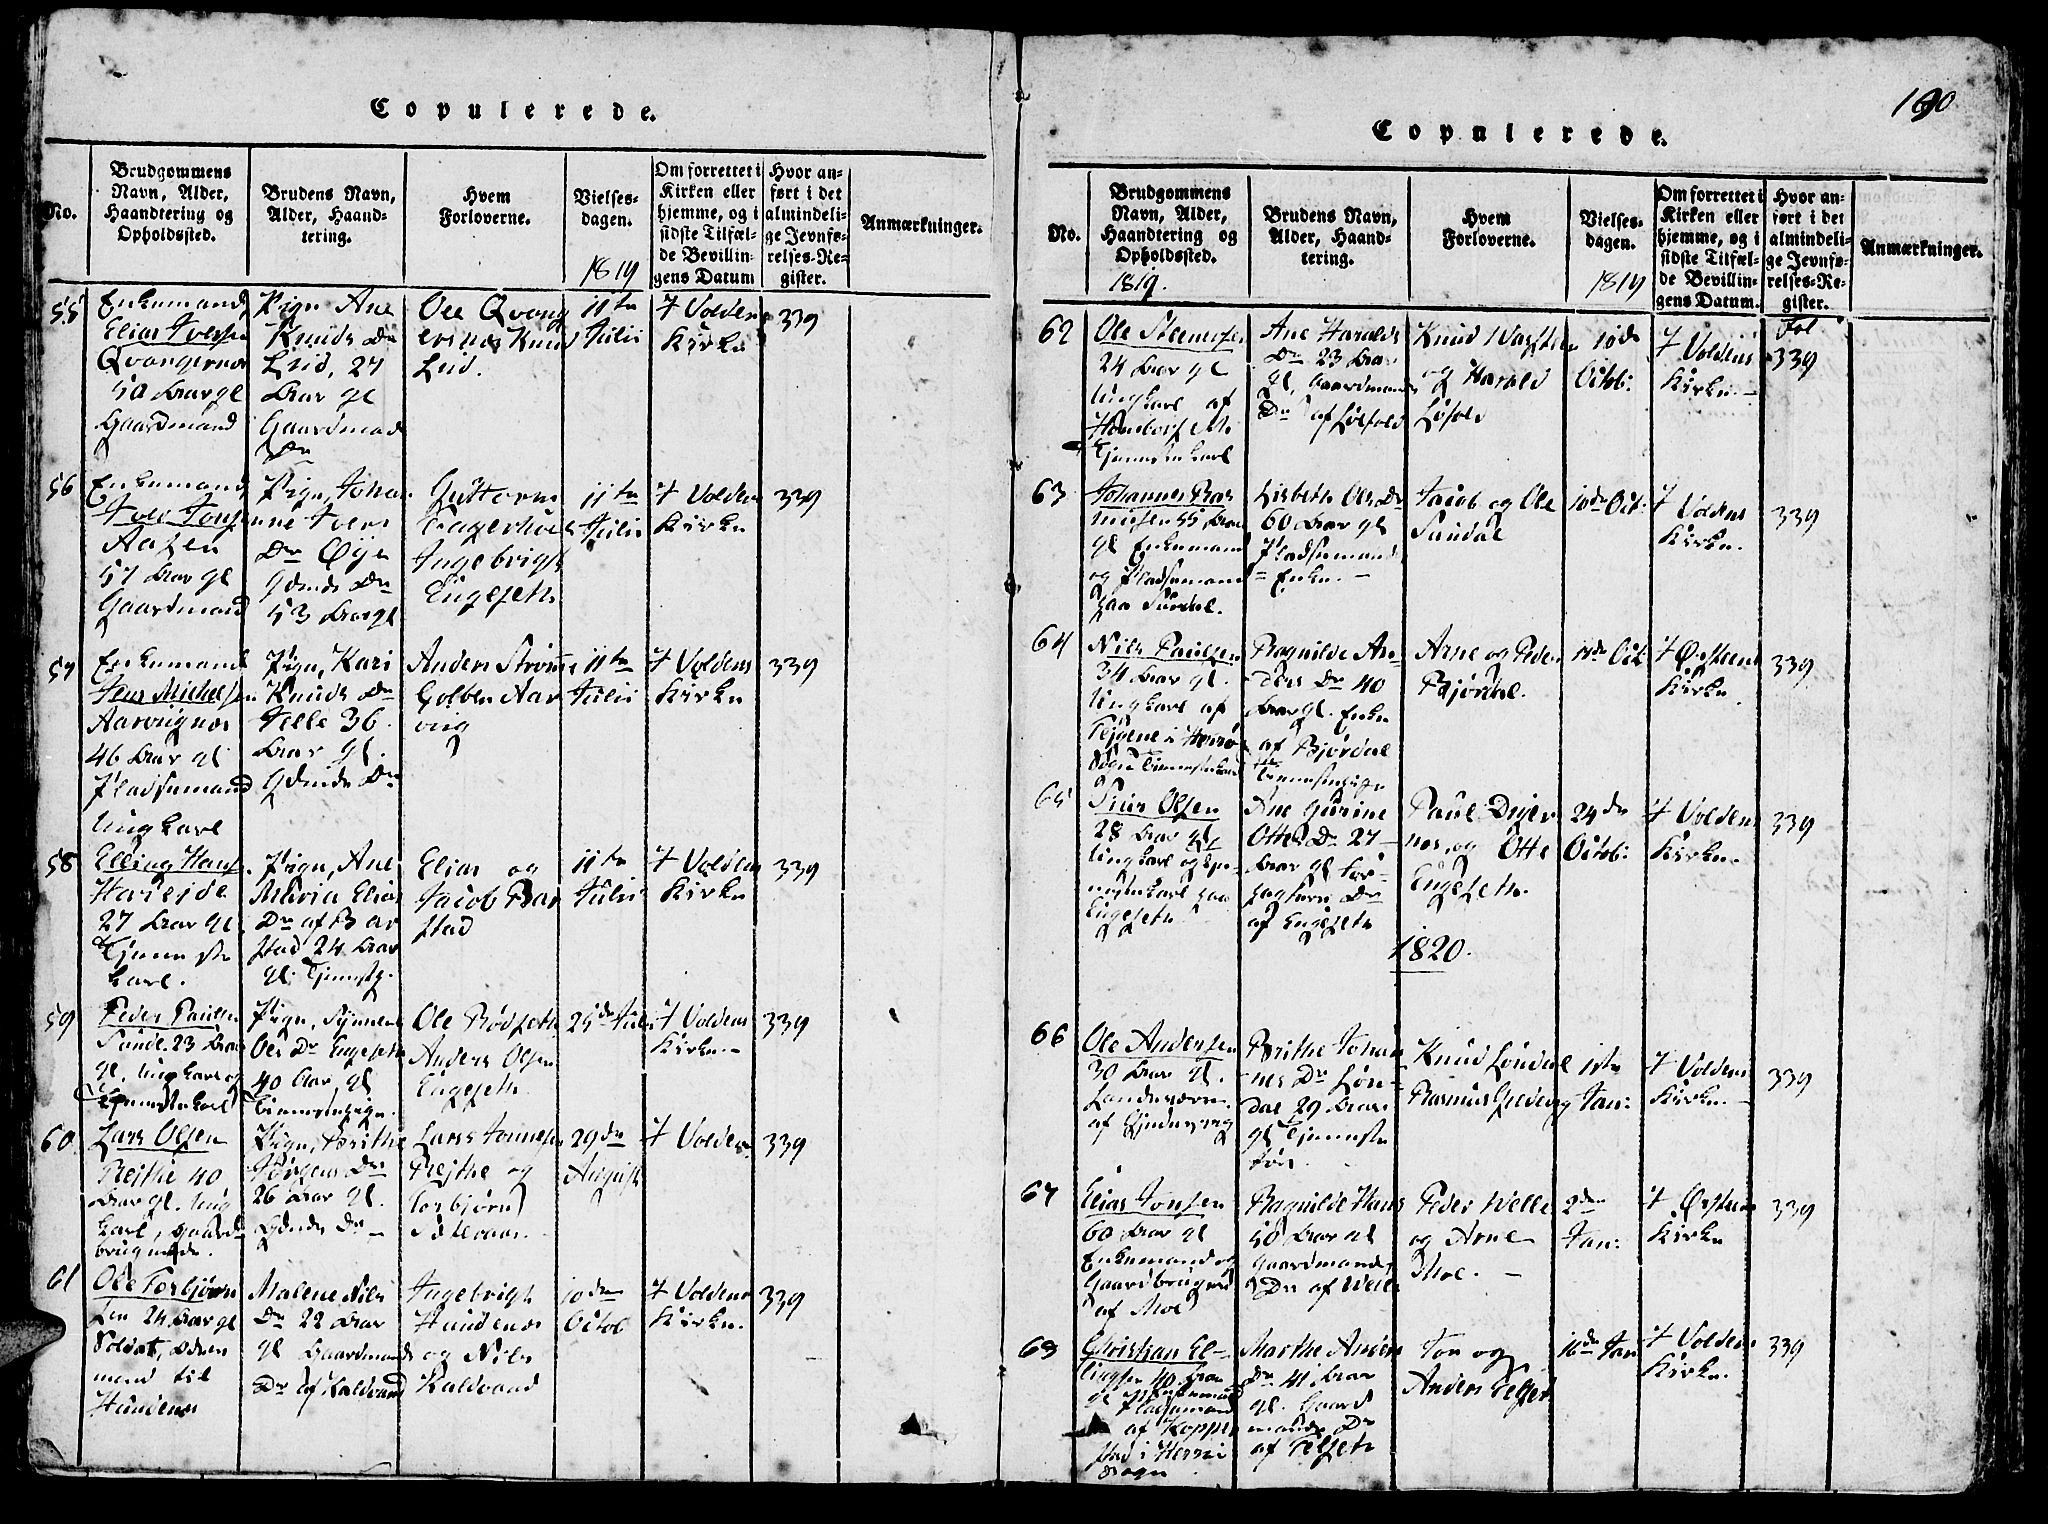 Copulerede.
No.
Brudgommens Navn, Alder, Haandtering og Opholdssted.
Brudens Navn, Alder, Haandtering.
Hvem Forloverne.
Vielsesdagen.
1819
Om forrettet i Kirken eller hjemme, og i sidste Tilfælde Bevillingens Datum
Hvor anført i det almindelige Jevnførelses-Register.
Anmærkninger.
55
Enkemand
Elias Iversen
Qvangernæs
50 Aar gl
Gaardmand
Pige Ane
Knuds Dr
Leid, 27
Aar gl
Gaardmands
Dr
Ole Qvang
ernæs Knud
Leid.
11te
Julii
I Voldens
Kirke
339
56
Enkemand
Aasen
57 Aar gl
Gaardmand
Pige, Johan
ne Joens
Dr Øye
Gdmds Dr
53 Aar gl
Guttorm
Ingebrigt
Engeseth
11te
Julii
I Voldens
Kirke
339
57
Enkemand
Jens Michelsen
Aarvignæs
46 Aar gl
Pladsemand
Pige, Kari
Knuds Dr
Velle 36
Aar gl.
Gdmds Dr
Anders Strømme
Golben Aar
vig
11te
Julii
I Voldens
Kirke
339
58
Ungkarl
Elling Hans.
Hareide
27 Aar gl.
Tjeneste
karl.
Pige, Ane
Maria Elias
Dr af Bar
stad 24 Aar
gl. Tjenestp.
Elias og
Jacob Bar
stad
11te
Julii
I Voldens
Kirke
339
59
Peder Paulsen
Sunde 23 Aar
gl. Ungkarl og
Tjenestekarl
Pige, Synneve
Ols Dr Engeseth
40 Aar gl
Tjenestepige.
Ole Rødseth
Anders Olsen
Engeseth
25de Julii
I Voldens
Kirke.
339
60
Lars Olsen
Rejthe 40
Aar gl. Ung
karl, Gaard
brugende.
Pige, Brithe
Jørgens Dr
26 Aar gl.
Gdmds Dr
Lars Tonnesen
Rejthe og
Torbjørn
29de
August
I Volden
339
61
Ole Torbjørn
sen 24 Aar gl
Soldat,
mand til
Hundenæs
Malene Nils
Dr 22 Aar
gl Gaardmands
Dr af Kaldvaad
Ingebrigt
Hundenæs
og Nils
Kaldvaad
10de
Octob
I Voldens
Kirke.
339
190
Copulerede.
No.
Brudgommens Navn, Alder, Haandtering og Opholdssted.
1819.
Brudens Navn, Alder, Haandtering.
Hvem Forloverne.
Vielsesdagen.
1819
Om forrettet i Kirken eller hjemme, og i sidste Tilfælde Bevillingens Datum.
Hvor anført i det almindelige Jevnførelses-Register.
Anmærkninger.
62
Ole Steensen
24 Aar gl
Ungkarl af
Tjenestekarl
Ane Haralds
Dr 23 Aar
gl, Gaardmands
Dr af Løfold
og Harald
Løfold
10de
Octob:
I Voldens
Kirke.
Fol
339
63
Johannes Ras
musen 55 Aar
gl Enkemand
og Pladsemand
paa Sundal.
Lisbeth Ols Dr
60 Aar gl
Pladsemands
Enke.
Jacob og Ole
Sundal
10de Oct:
I Voldens
Kirke.
339
64
Nils Paulsen
34 Aar gl.
Ungkarl af
Sogn Tjenestekarl
Ragnilde An
ders Dr 40
Aar gl. Enke
af Bjørdal
Tjenestepige
Arne og Peder
Bjørdal.
17de Oct:
I Ørstens
Kirke
339
65
Siur Olsen
28 Aar gl
Ungkarl og Tje
nestekarl paa
Engeseth
Ane Gurine
Ottes Dr 27
Aar gl
Dr
af Engeseth
Paul Digernæs, og Otte
Engeseth.
24de
Octob:
I Voldens
Kirke.
339
1820.
66
Ole Andersen
30 Aar gl.
Landeværn.
af Gjedsvig
Brithe Johan
nes Dr Løn
dal 29 Aar
gl Tjeneste
Knud Løndal
Rasmus Gjedsvig
1ste
Jan:
I Voldens
Kirke.
339
67
Elias Jonsen
60 Aar gl
Enkemand og
Gaardbruger
af Moe
Ragnilde Hans
50 Aar gl
Gaardmands
Dr af Welle
Peder Welle
og Arne
Moe.
2den
Jan:
I Ørstens
Kirke
339
68
Christian El-
lingsen 40 Aar
gl
Pladsemand
af Koppe
stad i
Sogn
Marthe Anders
Dr 41 Aar
gl. Gaard
mands Dr
af Velseth
Jon og
Anders Velseth
16de Jan
I Voldens
Kirke.
339